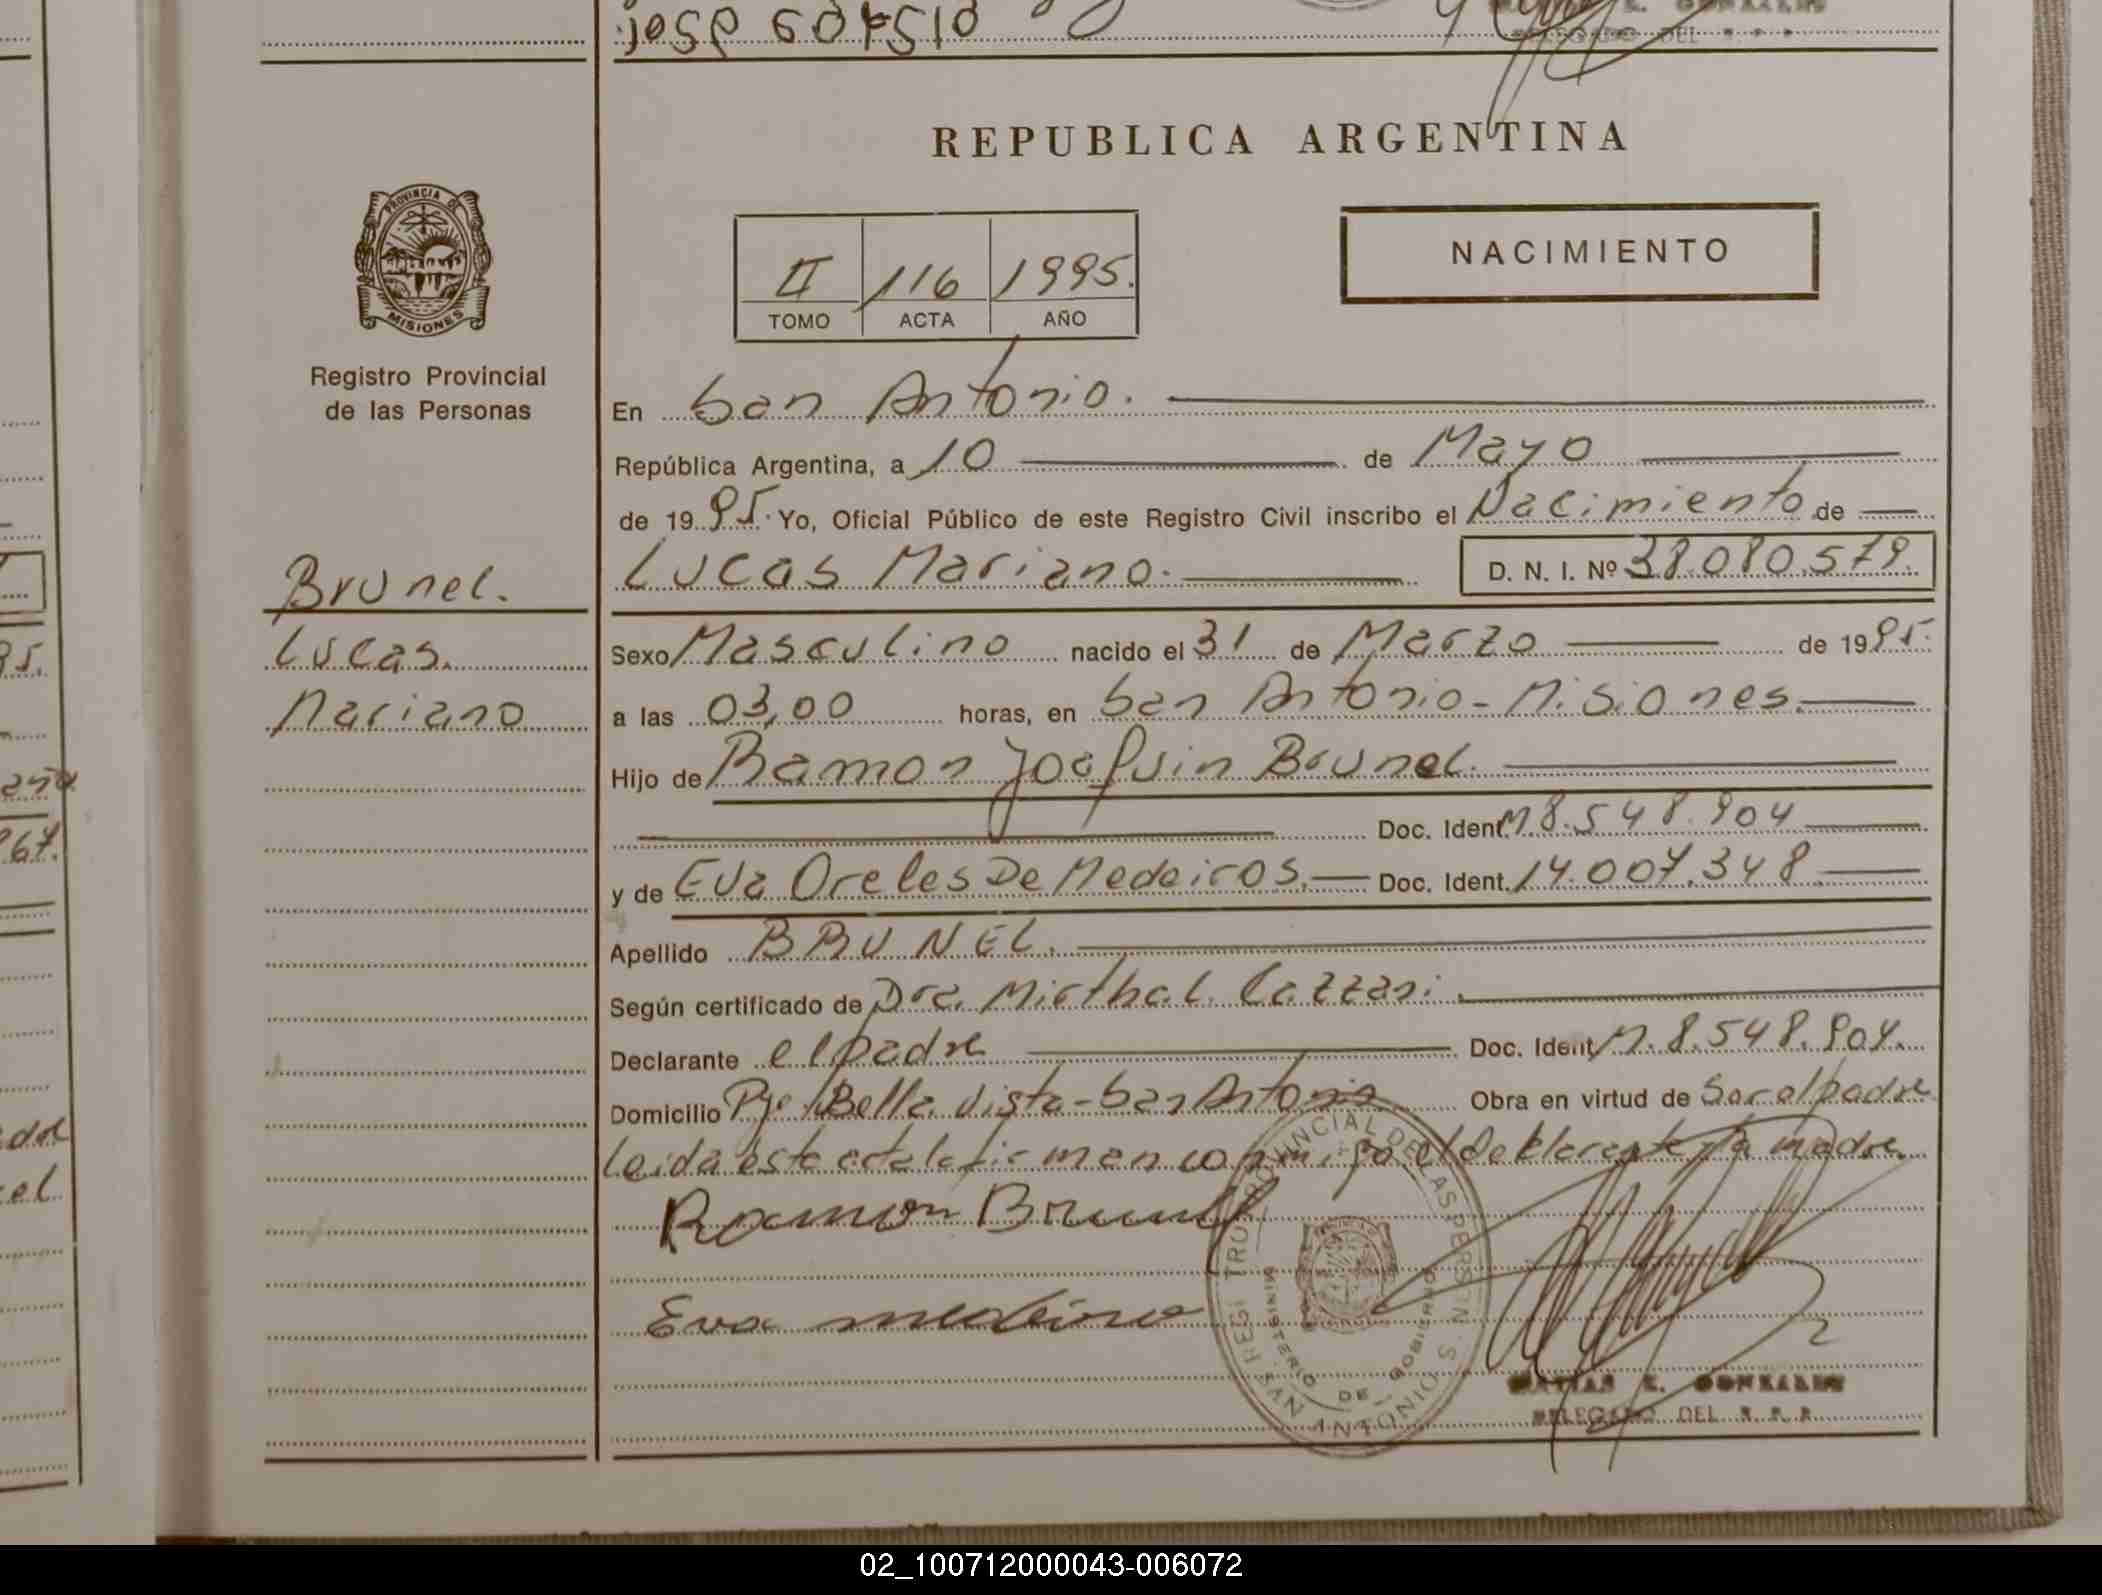 jose
REPUBLICA ARGENTINA
NACIMIENTO
II 116 1995.
TOMO ACTA AÑO
PROVINCIA DE
MISIONES
Registro Provincial
de las Personas
Brunel.
Lucas.
Mariano
En San Antonio.
República Argentina, a 10 de Mayo
de 1995. Yo, Oficial Público de este Registro Civil inscribo el Nacimiento de
Lucas Mariano. D. N. I. Nº 38.080.579.
Sexo Masculino nacido el 31 de Marzo de 1995.
a las 03,00 horas, en San Antonio - Misiones.
Hijo de Ramon Joaquin Brunel.
Doc. Ident. M 8.548.904
y de Eva Oreles De Medeiros. Doc. Ident. 14.007.348
Apellido BRUNEL.
Según certificado de Dra. Mirtha L. Cazzani.
Declarante el padre Doc. Ident. M. 8.548.904.
Domicilio Pje. Bella Vista - San Antonio Obra en virtud de Ser el padre
Leida esta acta la firman conmigo el deklarante y la madre
Ramon Brunel
Eva
REGISTRO PROVINCIAL DE LAS PERSONAS
MINISTERIO DE GOBIERNO
SAN ANTONIO
MATIAS E. GONZALES
DELEGADO DEL R. P. P.
02_100712000043-006072